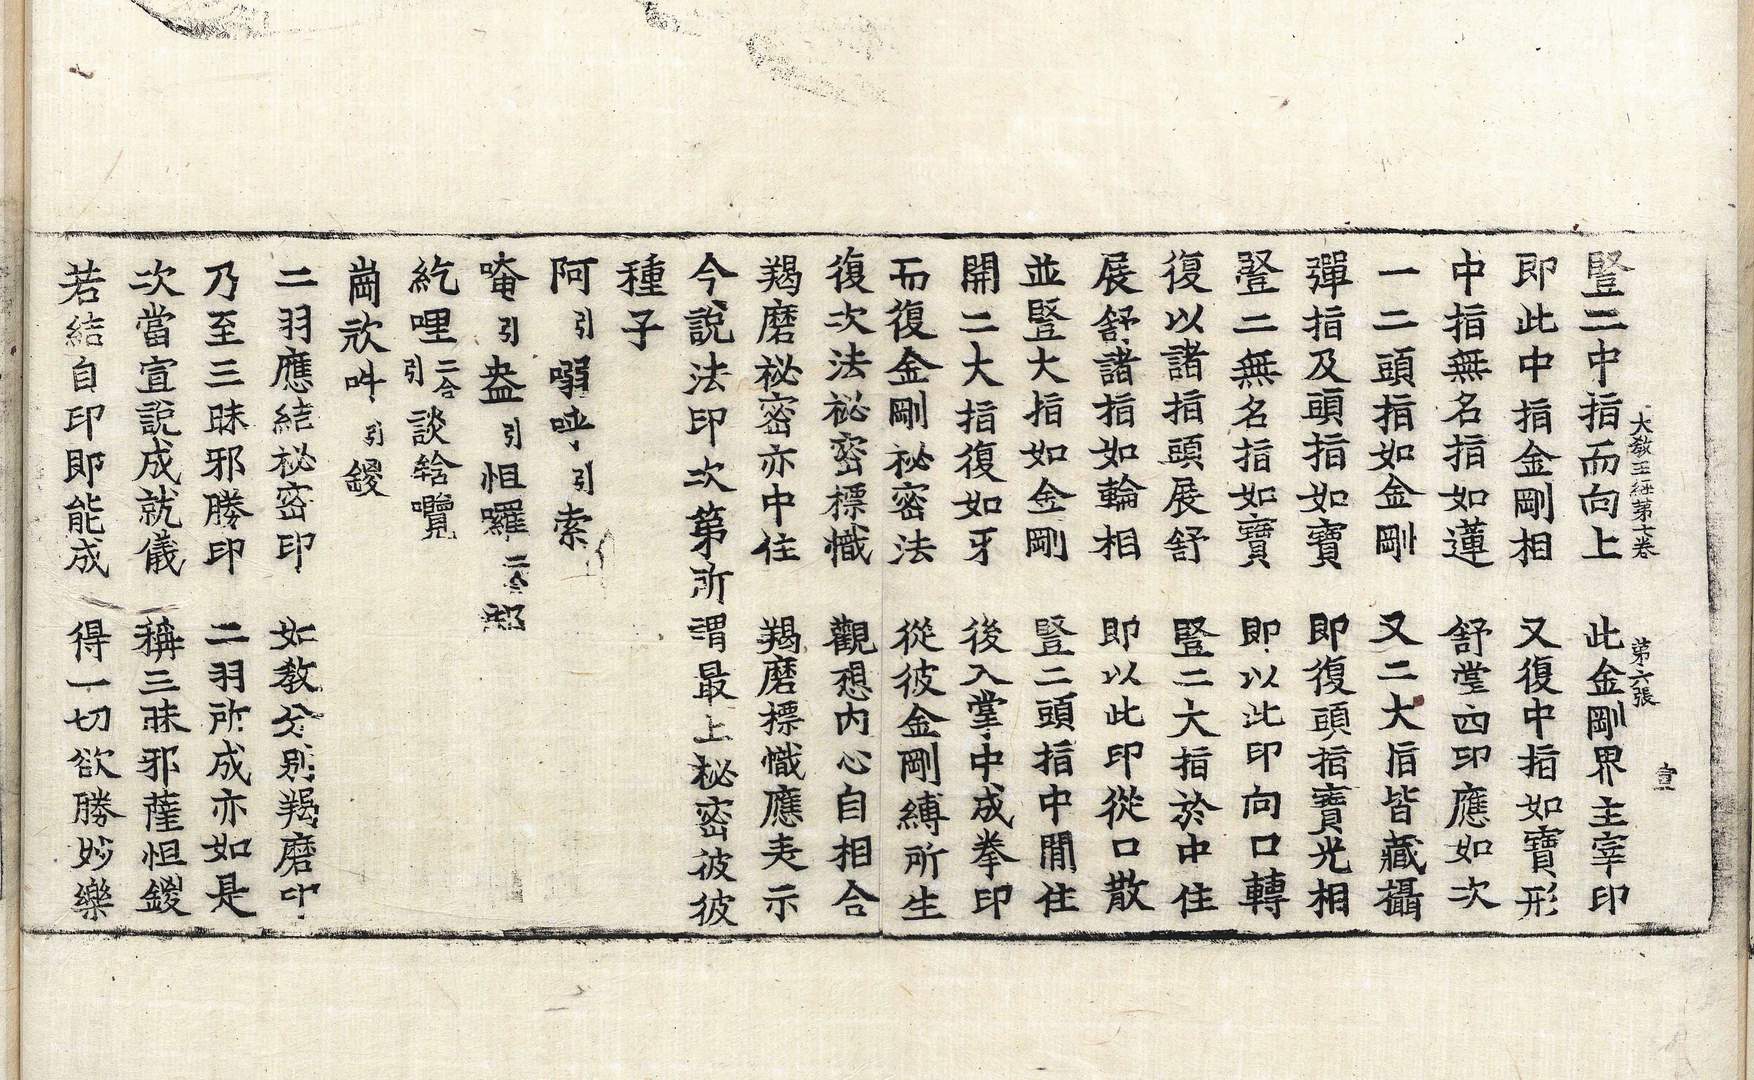 大教王経第十卷　第六張　壹
豎二中指而向上　此金剛界主宰印
即此中指金剛相　又復中指如寶形
中指無名指如蓮　舒掌四印應如次
一二頭指如金剛　又二大指皆藏攝
彈指及頭指如寶　即復頭指寶光相
豎二無名指如寶　即以此印向口轉
復以諸指頭展舒　豎二大指於中住
展舒諸指如輪相　即以此印從口散
並豎大指如金剛　豎二頭指中間住
開二大指復如牙　後入掌中成拳印
而復金剛祕密法　從彼金剛縛所生
復次法祕密標幟　觀想內心自相合
羯磨祕密亦中住　羯磨標幟應表示
今說法印次第所謂最上祕密彼彼
種子
阿引嗍呼引索
唵引盎引怛囉二合
紇哩二合引談唅囕
崗欣吽引鑁
二羽應結祕密印　如教分別羯磨印
乃至三昧邪勝印　二羽所成亦如是
次當宣說成就儀　稱三昧邪薩怛鑁
若結自印即能成　得一切欲勝妙樂